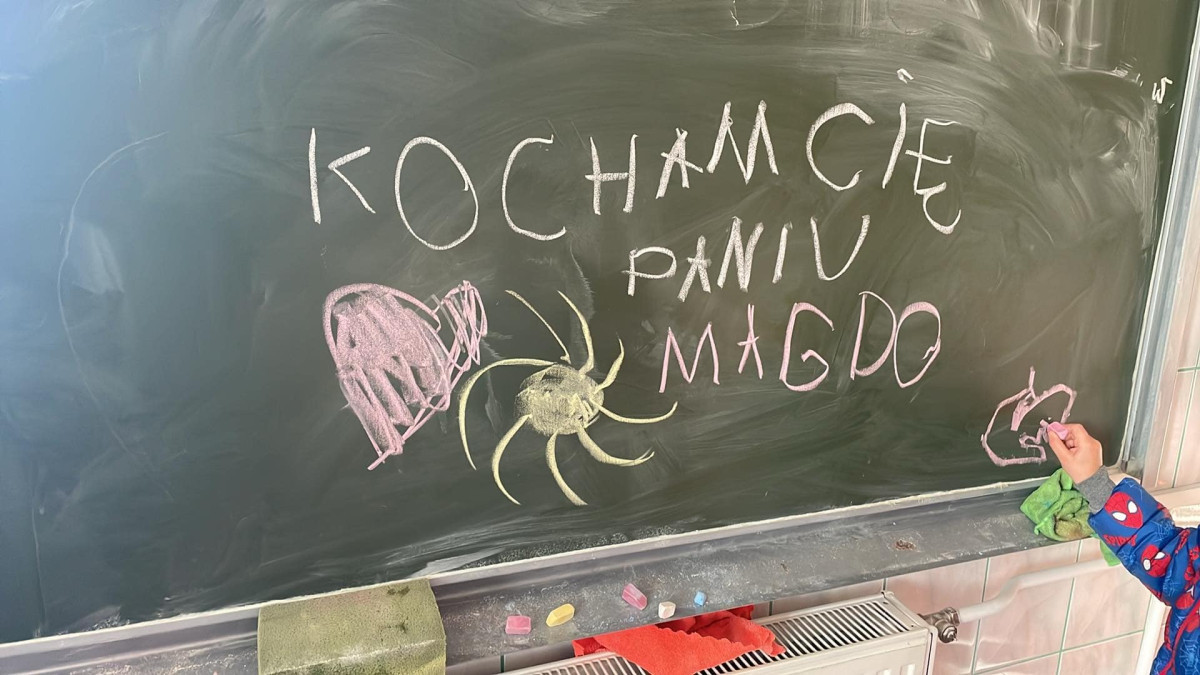 KOCHAM CIĘ
PANIU
MAGDO